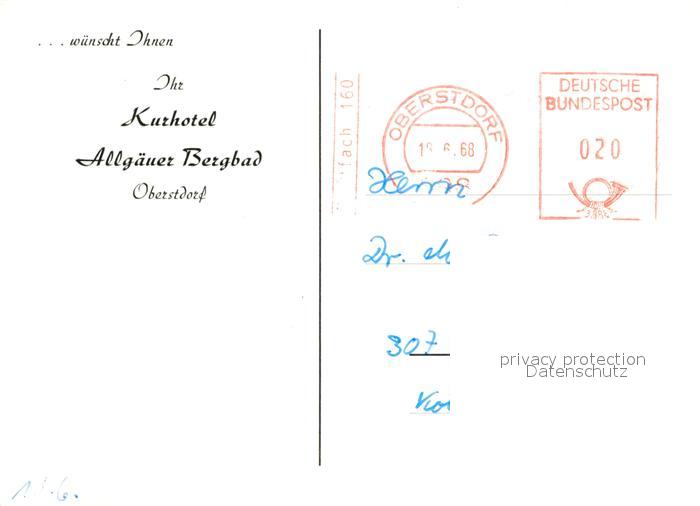 . . . wünscht Ihnen
Ihr
Kurhotel
Allgäuer Bergbad
Oberstdorf
fach 160
OBERSTDORF
6.68
DEUTSCHE
BUNDESPOST
020
Herrn
Dr.
307
privacy protection
Datenschutz